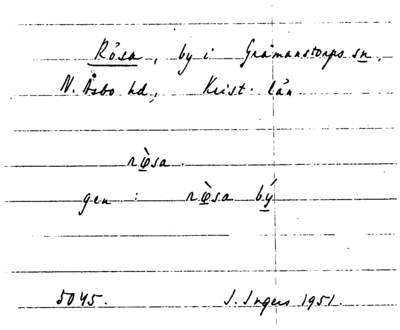 Rösa, by i Gråmanstorps sn,
N. Åsbo hd, Krist. län
rø̀sa.
gen : rø̀sa bý
5045. I. Ingers 1951.